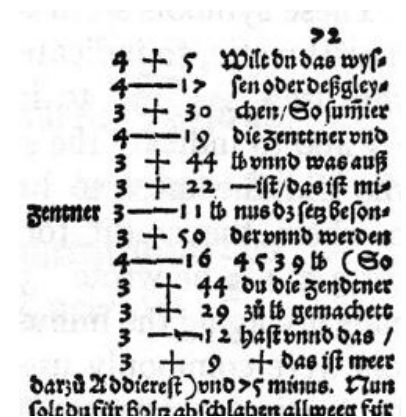 72
4 + 5 Wilt du das wyſ⸗
4 — 17 ſen oder deßgley⸗
3 + 30 chen/So ſum̄ier
4 — 19 die zenttner vnd
3 + 44 lb vnnd was auß
3 + 22 —iſt/das iſt mi⸗
zentner 3 — 11 lb nus dz ſetz beſon⸗
3 + 50 der vnnd werden
4 — 16 4539 lb (So
3 + 44 du die zendtner
3 + 29 zů lb gemachett
3 — 12 haſt vnnd das /
3 + 9 + das iſt meer
darzů Addiereſt) vnd 75 minus. Nun
ſolt du für holtz abſchlahen allweer für